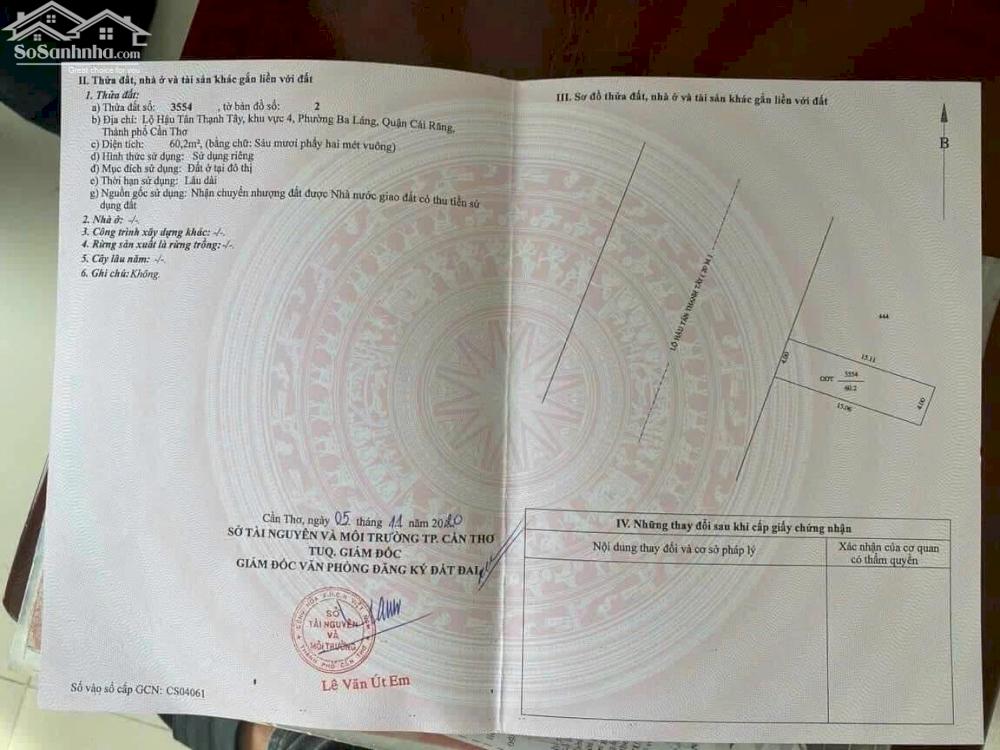 SoSanhnha.com
Great choice for you
II. Thửa đất, nhà ở và tài sản khác gắn liền với đất
1. Thửa đất:
a) Thửa đất số: 3554 , tờ bản đồ số: 2
b) Địa chỉ: Lộ Hậu Tân Thạnh Tây, khu vực 4, Phường Ba Láng, Quận Cái Răng,
Thành phố Cần Thơ
c) Diện tích: 60,2m², (bằng chữ: Sáu mươi phẩy hai mét vuông)
d) Hình thức sử dụng: Sử dụng riêng
đ) Mục đích sử dụng: Đất ở tại đô thị
e) Thời hạn sử dụng: Lâu dài
g) Nguồn gốc sử dụng: Nhận chuyển nhượng đất được Nhà nước giao đất có thu tiền sử
dụng đất
2. Nhà ở: -/-.
3. Công trình xây dựng khác: -/-.
4. Rừng sản xuất là rừng trồng: -/-.
5. Cây lâu năm: -/-.
6. Ghi chú: Không.
Cần Thơ, ngày 05 tháng 11 năm 2020
SỞ TÀI NGUYÊN VÀ MÔI TRƯỜNG TP. CẦN THƠ
TUQ. GIÁM ĐỐC
GIÁM ĐỐC VĂN PHÒNG ĐĂNG KÝ ĐẤT ĐAI
SỞ
TÀI NGUYÊN
VÀ
MÔI TRƯỜNG
THÀNH PHỐ CẦN THƠ
Lê Văn Út Em
Số vào sổ cấp GCN: CS04061
III. Sơ đồ thửa đất, nhà ở và tài sản khác gắn liền với đất
B
LỘ HẬU TÂN THẠNH TÂY ( 20 M )
444
4.00
15.11
ODT
3554
60.2
15.06
4.00
IV. Những thay đổi sau khi cấp giấy chứng nhận
Nội dung thay đổi và cơ sở pháp lý
Xác nhận của cơ quan
có thẩm quyền